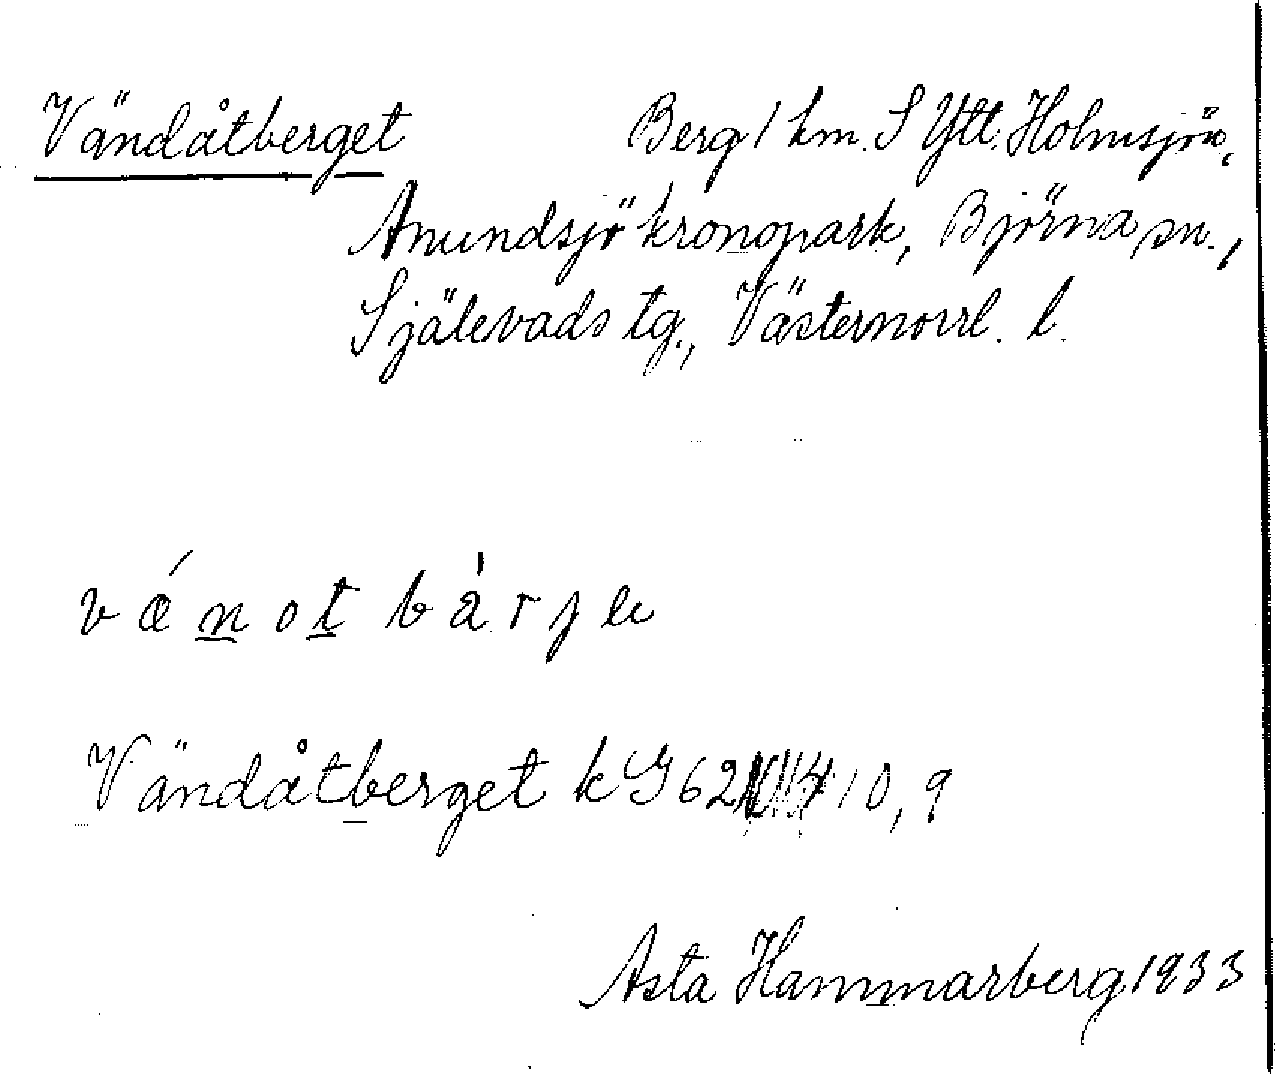 Vändåtberget Berg 1 km. S Ytt. Holmsjön,
Anundsjö kronopark, Björna sn.,
Själevads tg., Västernorrl. l.
vǽnot bàrje
Vändåtberget k G 62 10,9
Asta Hammarberg 1933